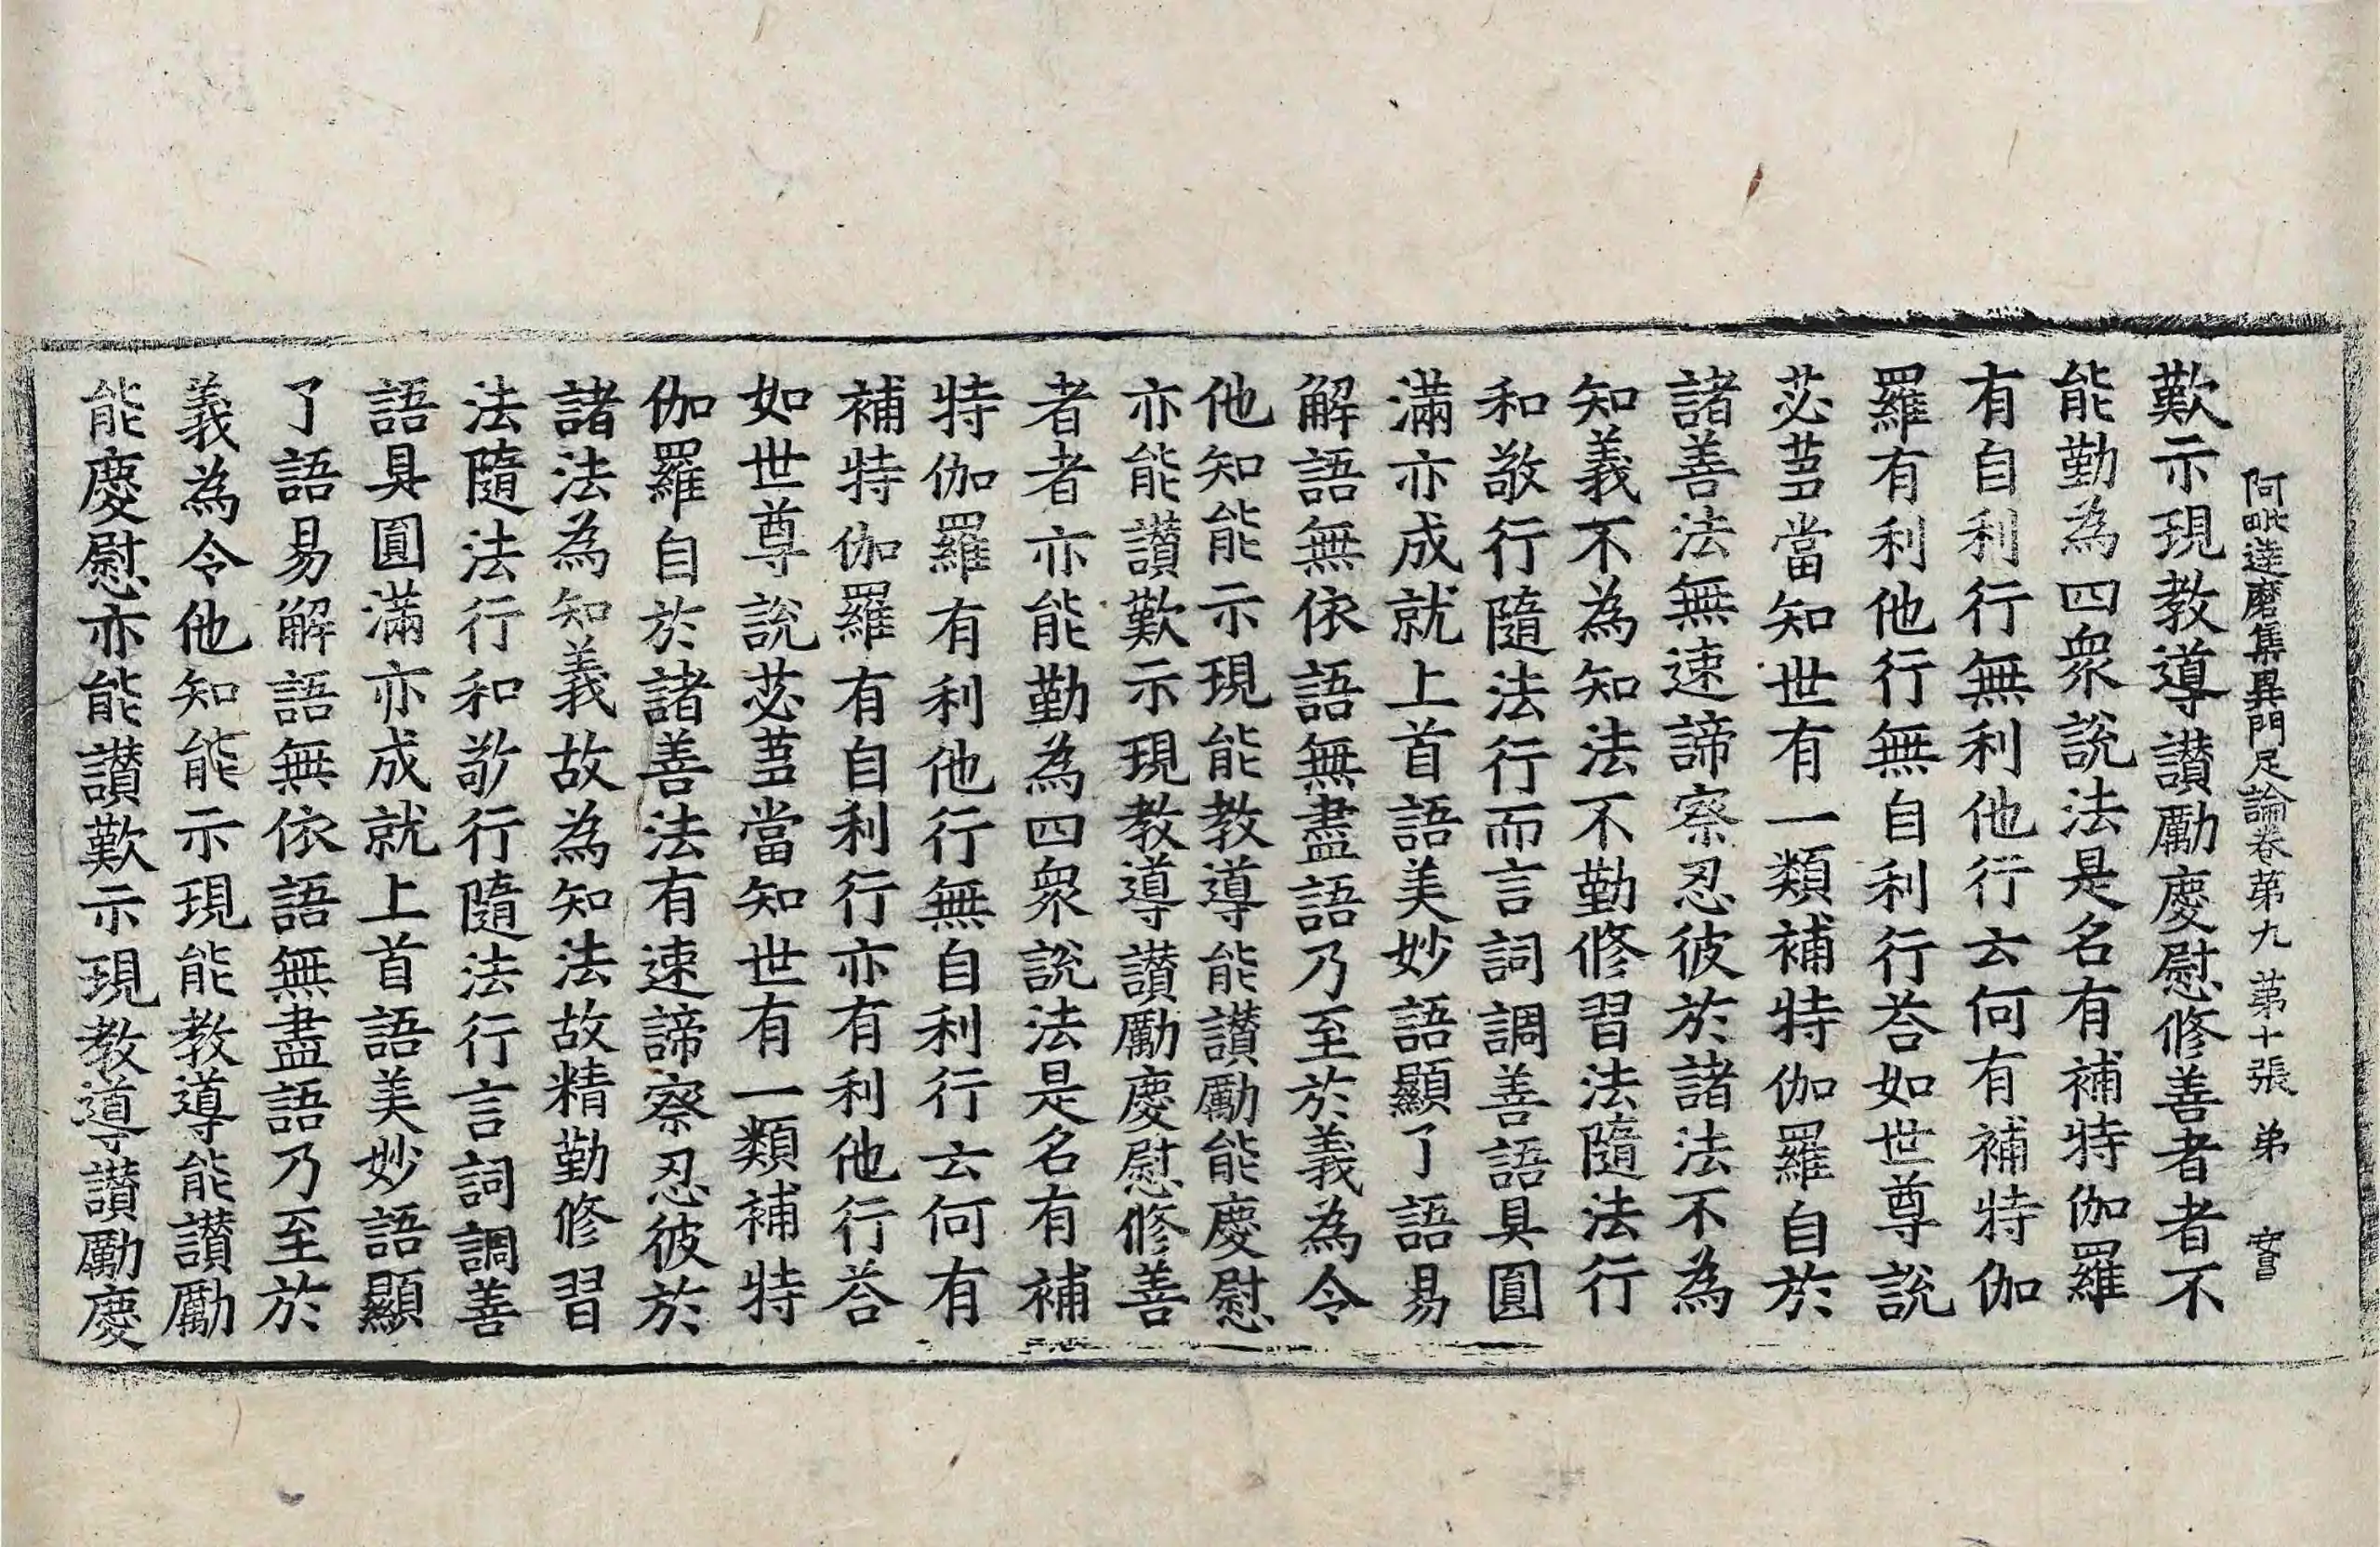 阿毗達磨集異門足論卷第九 第十張 弟
歎示現教導讃勵慶慰修善者者不
能勤為四衆說法是名有補特伽羅
有自利行無利他行云何有補特伽
羅有利他行無自利行荅如世尊說
苾蒭當知世有一類補特伽羅自於
諸善法無速諦察忍彼於諸法不為
知義不為知法不勤修習法隨法行
和敬行隨法行而言詞調善語具圓
滿亦成就上首語美妙語顯了語易
解語無依語無盡語乃至於義為令
他知能示現能教導能讃勵能慶慰
亦能讃歎示現教導讃勵慶慰修善
者者亦能勤為四衆說法是名有補
特伽羅有利他行無自利行云何有
補特伽羅有自利行亦有利他行荅
如世尊說苾蒭當知世有一類補特
伽羅自於諸善法有速諦察忍彼於
諸法為知義故為知法故精勤修習
法隨法行和敬行隨法行言詞調善
語具圓滿亦成就上首語美妙語顯
了語易解語無依語無盡語乃至於
義為令他知能示現能教導能讃勵
能慶慰亦能讃歎示現教導讃勵慶